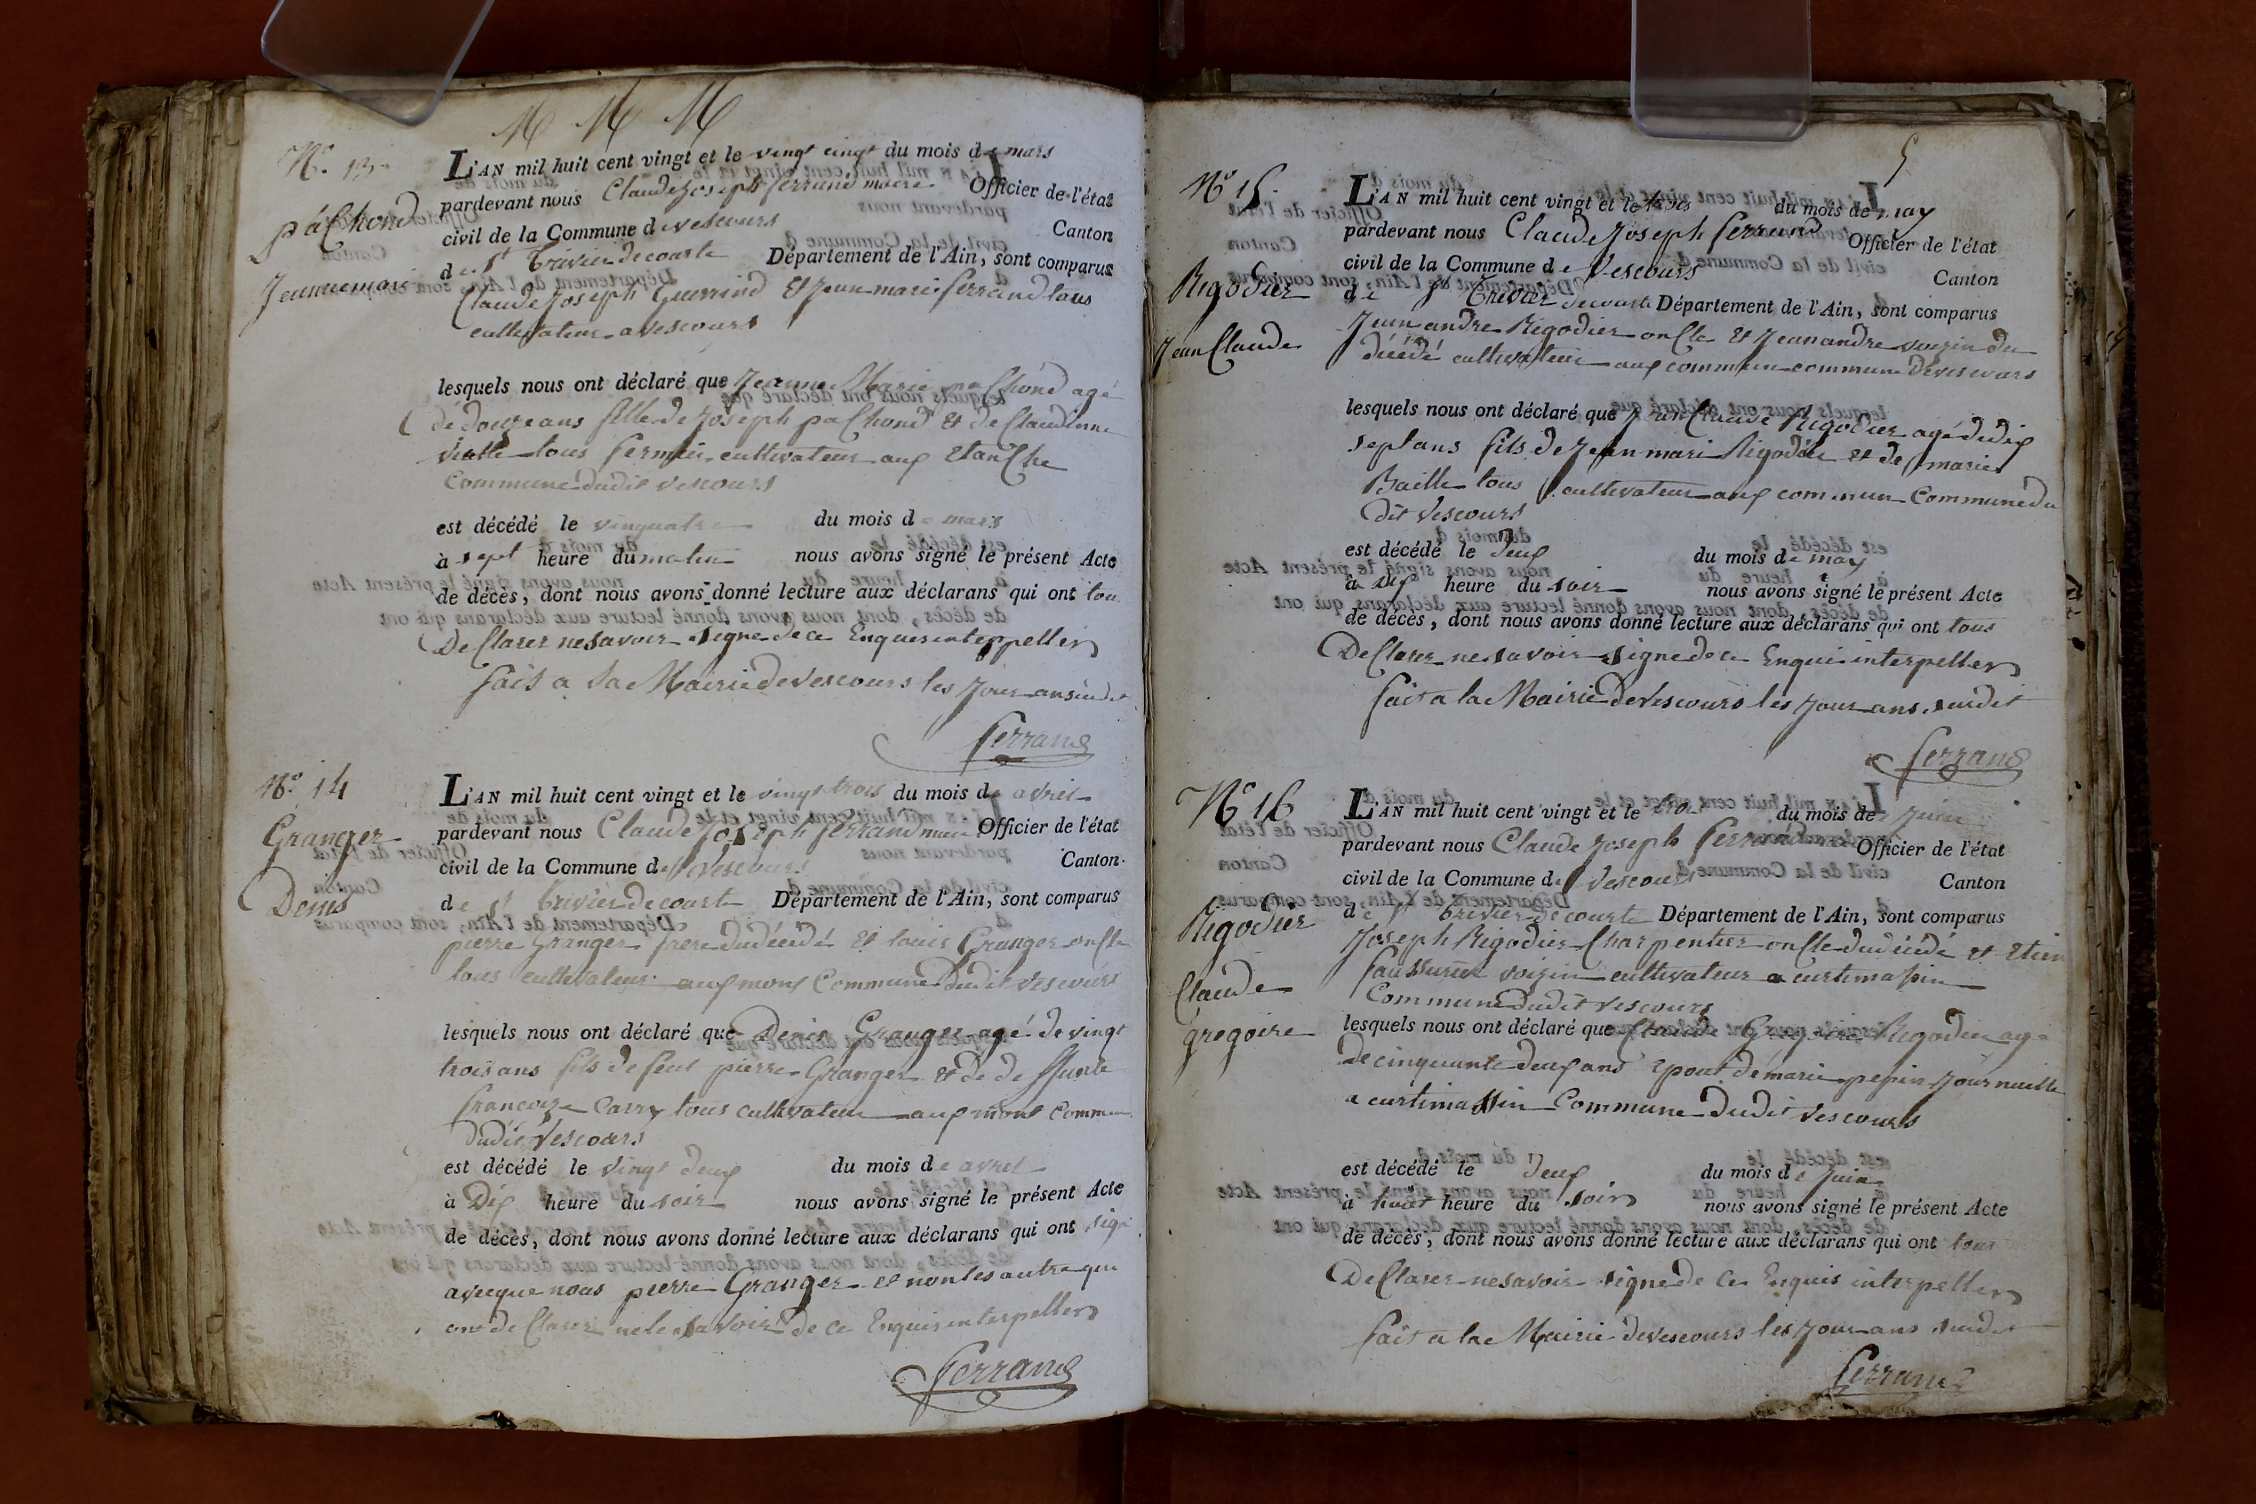 M M M
N.o 13
pâChond
Jeannemarie
L'AN mil huit cent vingt et le vingt cinq du mois de mars
pardevant nous Claude Joseph ferrand maire Officier de l'état
civil de la Commune de vescours Canton
de St trivier de courte Département de l'Ain, sont comparus
Claude Joseph Guerrind Et Jean marie ferrand tous
cultivateur a vescours
lesquels nous ont déclaré que Jeanne Marie paChond agé
de douze ans fille de Joseph paChond Et de Claudinne
tous fermier cultivateur aux EtanChe
Commune dudit vescours
est décédé le vinquatre du mois de mars
à sept heure du matin nous avons signé le présent Acte
de décès, dont nous avons donné lecture aux déclarans qui ont tou
DeClarer nesavoir signe de ce Enques interppeller
fait a la Mairie de vescours les Jour an susdit
ferrand
N.o 14
Granger
Denis
L'AN mil huit cent vingt et le vingt trois du mois de avril
pardevant nous Claude Joseph ferrand maire Officier de l'état
civil de la Commune de Vescours Canton
de St trivier de courte Département de l'Ain, sont comparus
pierre Granger frere dudécédé Et louis Granger onCle
tous cultivateur aux mons Commune dudit vescours
lesquels nous ont déclaré que Denis Granger agé de vingt
trois ans fils de feut pierre Granger et de
francoize Carry tous cultivateur aux mons Commun
dudit Vescours
est décédé le vingt deux du mois de avril
à Dix heure du soir nous avons signé le présent Acte
de décès, dont nous avons donné lecture aux déclarans qui ont sign
avecque nous pierre Granger et non les autre qui
ont de Clarer ne le savoir de ce Enquis interpeller
ferrand
5
N.o 15
Rigodier
Jean Claude
L'AN mil huit cent vingt et le trois du mois de may
pardevant nous Claude Joseph ferrand Officier de l'état
civil de la Commune de Vescours Canton
de St trevier de courte Département de l'Ain, sont comparus
Jean andre Rigodier onCle Et Jean andre voizin du
décédé cultivateur aux commun commune de vescours
lesquels nous ont déclaré que Jean Claude Rigodier agé de dix
sept ans fils de Jean mari Rigodier et de marie
Baille tous cultivateur aux commun Commune du
dit Vescours
est décédé le deux du mois de may
à Dix heure du soir nous avons signé le présent Acte
de décès, dont nous avons donné lecture aux déclarans qui ont tous
DeClarer nesavoir signe de ce Enqui interpeller
fait a la Mairie de Vescours les Jour ans susdit
ferrand
N.o 16
Rigodier
Claude
gregoire
L'AN mil huit cent vingt et le troi du mois de Juin
pardevant nous Claude Joseph ferrand Officier de l'état
civil de la Commune de Vescours Canton
de St trevier de courte Département de l'Ain, sont comparus
Joseph Rigodier Charpentier onCle dudécédé et Etien
voizin cultivateur a curtimassin
Commune dudit vescours
lesquels nous ont déclaré que Claude Gregoire Rigodier age
de cinquante deux ans Epout de marie pepin
a curtimassin Commune dudit Vescours
est décédé le deux du mois de Juin
à huit heure du soir nous avons signé le présent Acte
de décès, dont nous avons donné lecture aux déclarans qui ont tous
DeClarer nesavoir signe de Ce Enquis interpeller
fait a la Mairie de vescours les Jour ans susdit
ferrand